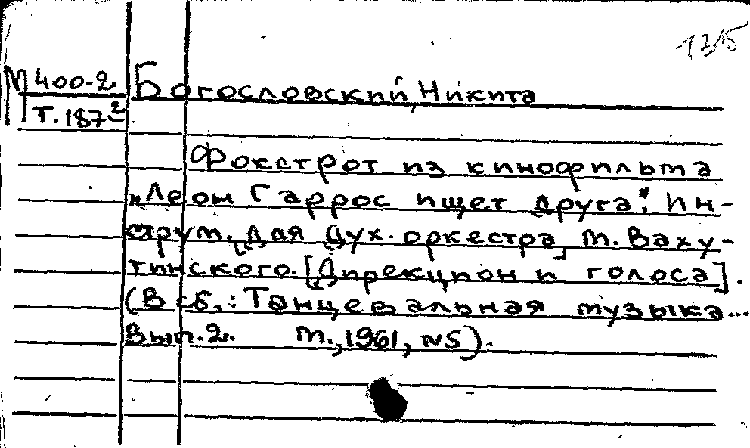 1215
М 400-2
Т. 187²
Богословский, Никита
Фокстрот из кинофильма
„Леон Гаррос ищет друга". Ин-
струм. [для дух. оркестра] М. Ваху-
тинского. [Дирекцион и голоса].
(В сб.: Танцевальная музыка...
Вып. 2. М., 1961, №5).